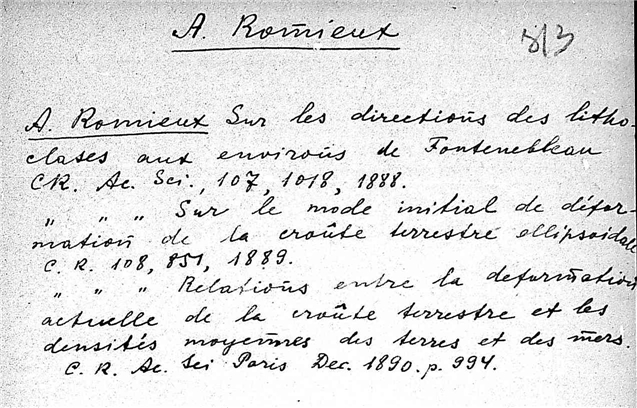 A. Romieux
813
A. Romieux Sur les directions des litho-
clases aux environs de Fontenebleau
CR. Ac. Sci., 107, 1018, 1888.
„ „ „ Sur le mode initial de défor-
mation de la croûte terrestre ellipsoidale
C. R. 108, 851, 1889.
„ „ „ Relations entre la deformation
actuelle de la croûte terrestre et les
densités moyennes des terres et des mers.
C. R. Ac. Sci Paris Dec. 1890. p. 994.